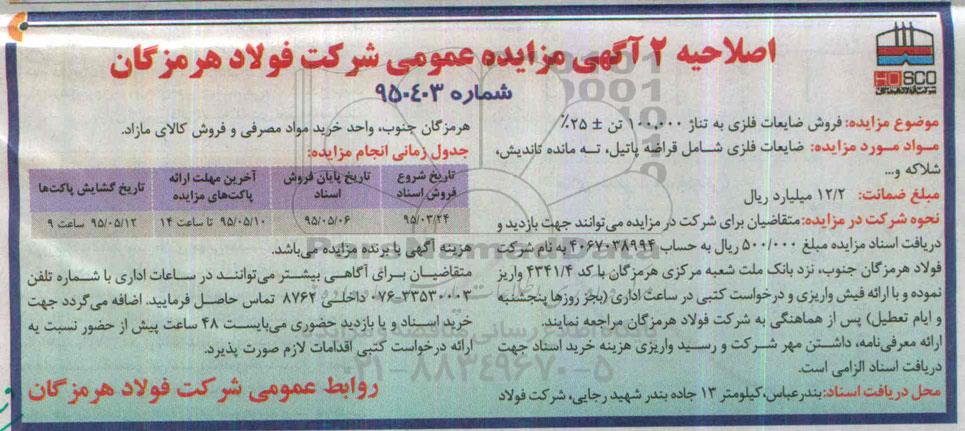 اصلاحیه ۲ آگهی مزایده عمومی شرکت فولاد هرمزگان
شماره ۹۵۰۴۰۳
HOSCO
شرکت فولاد هرمزگان
موضوع مزایده: فروش ضایعات فلزی به تناژ ۱۰۰,۰۰۰ تن ± ۲۵٪
مواد مورد مزایده: ضایعات فلزی شامل قراضه پاتیل، ته مانده تاندیش،
شلاکه و...
مبلغ ضمانت: ۱۲/۲ میلیارد ریال
نحوه شرکت در مزایده: متقاضیان برای شرکت در مزایده می‌توانند جهت بازدید و
دریافت اسناد مزایده مبلغ ۵۰۰/۰۰۰ ریال به حساب ۴۰۶۷۰۳۸۹۹۴ به نام شرکت
فولاد هرمزگان جنوب، نزد بانک ملت شعبه مرکزی هرمزگان با کد ۴۳۴۱/۴ واریز
نموده و با ارائه فیش واریزی و درخواست کتبی در ساعت اداری (بجز روزها پنجشنبه
و ایام تعطیل) پس از هماهنگی به شرکت فولاد هرمزگان مراجعه نمایند.
ارائه معرفی‌نامه، داشتن مهر شرکت و رسید واریزی هزینه خرید اسناد جهت
دریافت اسناد الزامی است.
محل دریافت اسناد: بندرعباس، کیلومتر ۱۳ جاده بندر شهید رجایی، شرکت فولاد
هرمزگان جنوب، واحد خرید مواد مصرفی و فروش کالای مازاد.
جدول زمانی انجام مزایده:
تاریخ شروع فروش اسناد
تاریخ پایان فروش اسناد
آخرین مهلت ارائه پاکت‌های مزایده
تاریخ گشایش پاکت‌ها
۹۵/۰۳/۲۴
۹۵/۰۵/۰۶
۹۵/۰۵/۱۰ تا ساعت ۱۴
۹۵/۰۵/۱۲ ساعت ۹
هزینه آگهی با برنده مزایده می‌باشد.
متقاضیان برای آگاهی بیشتر می‌توانند در ساعات اداری با شماره تلفن
۰۷۶-۳۳۵۳۰۰۰۳ داخلی ۸۷۶۲ تماس حاصل فرمایید. اضافه می‌گردد جهت
خرید اسناد و یا بازدید حضوری می‌بایست ۴۸ ساعت پیش از حضور نسبت به
ارائه درخواست کتبی اقدامات لازم صورت پذیرد.
روابط عمومی شرکت فولاد هرمزگان
ParsNamadData
۰۲۱-۸۸۳۴۹۶۷۰-۵